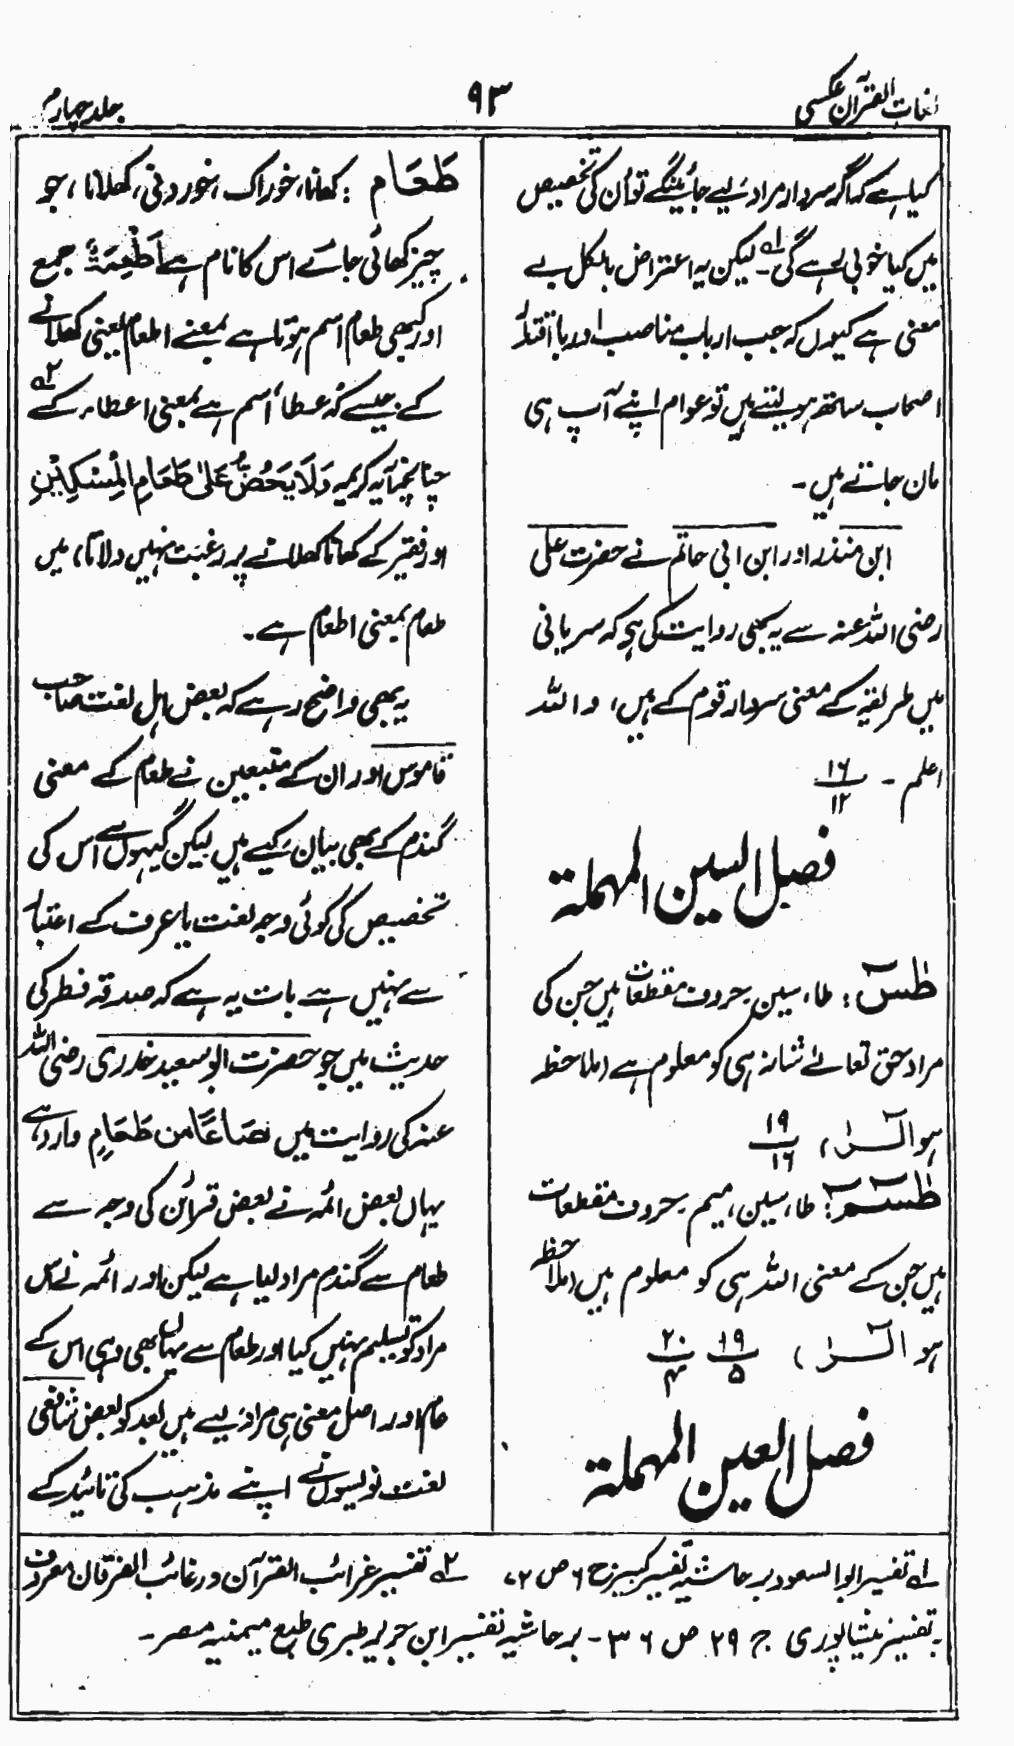 لغات القرآن عکسی
۹۳
جلد چہارم
کیا ہے کہ اگر سردار مراد لیے جائینگے تو اُن کی تخصیص
میں کیا خوبی ہے ہے گی لہ۔ لیکن یہ اعتراض بالکل بے
معنی ہے کیوں کہ جب ارباب مناصب اور با اقتدار
اصحاب ساتھ ہو لیتے ہیں تو عوام اپنے آپ ہی
مان جاتے ہیں۔
ابن منذر اور ابن ابی حاتم نے حضرت علی
رضی اللہ عنہ سے یہ بھی روایت کی ہے کہ سریانی
میں طریقہ کے معنی سردار قوم کے ہیں، واللہ
اعلم۔ ۱۶/۱۲
فصل السین المہملة
طٰسٓ: طا، سین۔ حروف مقطعات ہیں جن کی
مراد حق تعالےٰ شانہ ہی کو معلوم ہے (ملاحظہ
ہو الٓرٰ) ۱۹/۱۶
طٰسٓمٓ: طا، سین، میم۔ حروف مقطعات
ہیں جن کے معنی اللہ ہی کو معلوم ہیں (ملاحظہ
ہو الٓرٰ) ۱۹/۵ ۲۰/۴
فصل العین المہملة
طَعَام: کھانا، خوراک، خوردنی، کھلانا، جو
چیز کھائی جائے اس کا نام ہے اَطْعِمَةٌ جمع
اور کبھی طعام اسم ہوتا ہے بمعنے اطعام یعنی کھلانے
کے جیسے کہ عطاء اسم ہے بمعنی اعطاء کے ۲ہ
چنانچہ آیہ کریمہ وَلَا يَحُضُّ عَلٰى طَعَامِ الْمِسْكِيْنِ
اور فقیر کے کھانا کھلانے پر رغبت نہیں دلاتا، میں
طعام بمعنی اطعام ہے۔
یہ بھی واضح رہے کہ بعض اہل لغت صاحب
قاموس اور ان کے متبعین نے طعام کے معنی
گندم کے بھی بیان کیے ہیں لیکن گیہوں سے اس کی
تخصیص کی کوئی وجہ لغت یا عرف کے اعتبار
سے نہیں ہے بات یہ ہے کہ صدقہ فطر کی
حدیث میں جو حضرت ابو سعید خدری رضی اللہ
عنہ کی روایت میں صَاعًا من طَعَامٍ وارد ہے
یہاں بعض ائمہ نے بعض قرائن کی وجہ سے
طعام سے گندم مراد لیا ہے لیکن اور ائمہ نے اس
مراد کو تسلیم نہیں کیا اور طعام سے یہاں بھی وہی اس کے
عام اور اصل معنی ہی مراد لیے ہیں بعد کو بعض شافعی
لغت نویسوں نے اپنے مذہب کی تائید کے
لہ تفسیر ابو السعود بر حاشیہ تفسیر کبیر ج ۶ ص ۷۲ ۲ہ تفسیر غرائب القرآن و رغائب الفرقان معروف
بہ تفسیر نیشاپوری ج ۲۹ ص ۳۶۔ بر حاشیہ تفسیر ابن جریر طبری طبع میمنیہ مصر۔